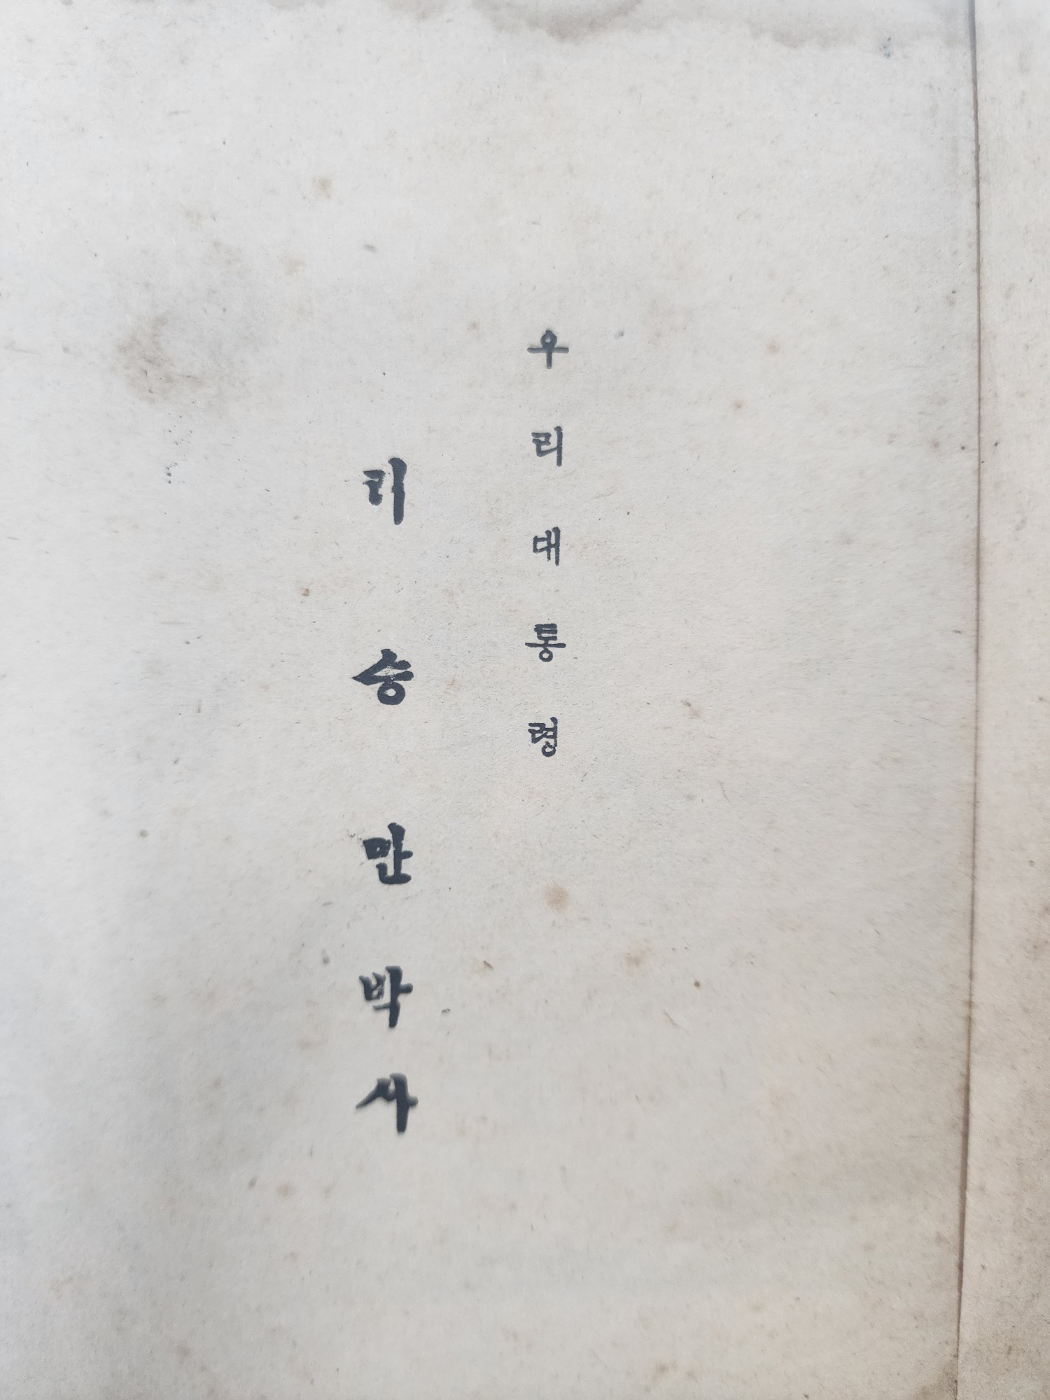 우리대통령
리승만박사